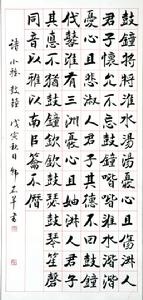 鼓鐘將將淮水湯湯憂心且傷淑人
君子懷允不忘鼓鐘喈喈淮水湝湝
憂心且悲淑人君子其德不回鼓鐘
伐鼛淮有三洲憂心且妯淑人君子
其德不猶鼓鐘欽欽鼓瑟鼓琴笙磬
同音以雅以南以籥不僭
詩小雅鼓鐘 戊寅秋月 書